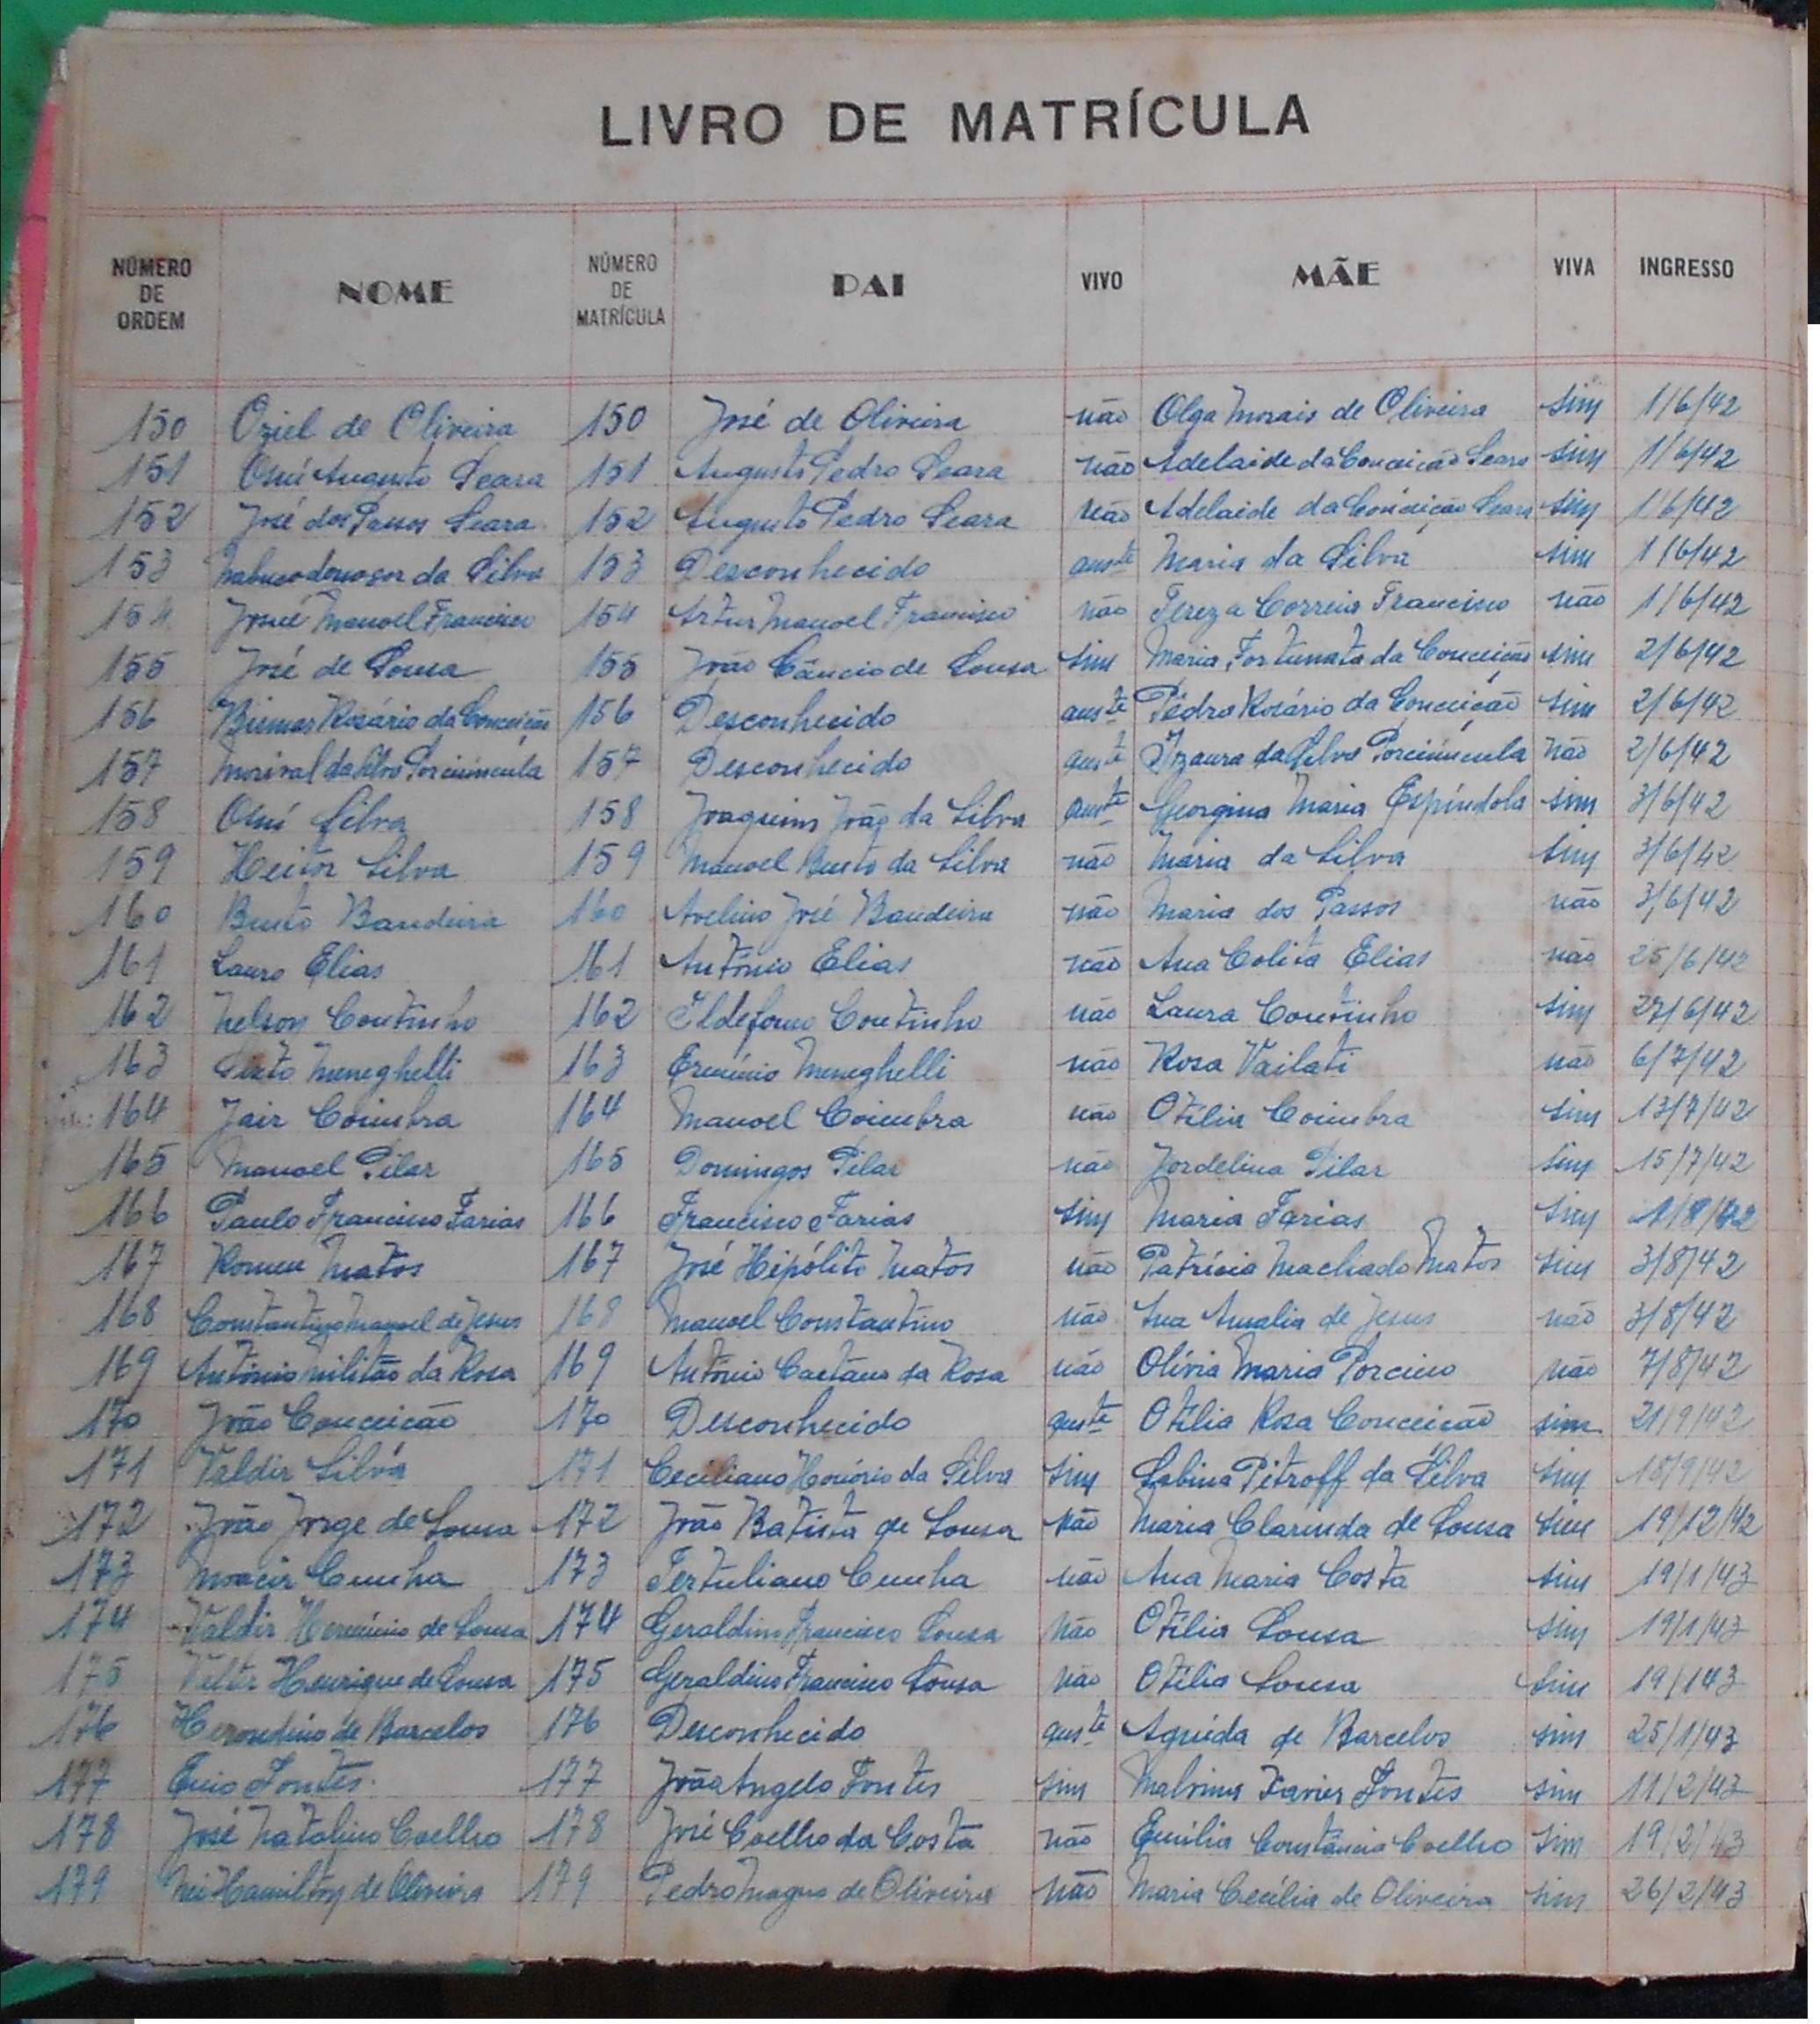 LIVRO DE MATRÍCULA
NÚMERO DE ORDEM NOME NÚMERO DE MATRÍCULA PAI VIVO MÃE VIVA INGRESSO
150 Oziel de Oliveira 150 José de Oliveira não Olga Morais de Oliveira sim 1/6/42
151 Osní Augusto Seara 151 Augusto Pedro Seara não Adelaide da Conceição Seara sim 1/6/42
152 José dos Passos Seara 152 Augusto Pedro Seara não Adelaide da Conceição Seara sim 1/6/42
153 Nabucodonosor da Silva 153 Desconhecido auste Maria da Silva sim 1/6/42
154 Josué Manoel Francisco 154 Artur Manoel Francisco não Tereza Correia Francisco não 1/6/42
155 José de Sousa 155 João Câncio de Sousa sim Maria Fortunata da Conceição sim 2/6/42
156 Rosário da Conceição 156 Desconhecido auste Pedra Rosário da Conceição sim 2/6/42
157 da Silva Porciúncula 157 Desconhecido auste Izaura da Silva Porciúncula não 2/6/42
158 Osní Silva 158 Joaquim João da Silva auste Georgina Maria Espíndola sim 3/6/42
159 Heitor Silva 159 Manoel Bento da Silva não Maria da Silva sim 3/6/42
160 Bento Bandeira 160 Avelino José Bandeira não Maria dos Passos não 3/6/42
161 Lauro Elias 161 Antônio Elias não Ana Colita Elias não 25/6/42
162 Nelson Coutinho 162 Ildefonso Coutinho não Laura Coutinho sim 27/6/42
163 Meneghelli 163 Ermínio Meneghelli não Rosa Vailati não 6/7/42
164 Jair Coimbra 164 Manoel Coimbra não Otília Coimbra sim 13/7/42
165 Manoel Pilar 165 Domingos Pilar não Jordelina Pilar sim 15/7/42
166 Paulo Francisco Farias 166 Francisco Farias sim Maria Farias sim 1/8/42
167 Romeu Matos 167 José Hipólito Matos não Patrícia Machado Matos sim 3/8/42
168 Constantino Manoel de Jesus 168 Manoel Constantino não Ana Amalia de Jesus não 3/8/42
169 Antônio Militão da Rosa 169 Antônio Caetano da Rosa não Olívia Maria Porcino não 7/8/42
170 João Conceição 170 Desconhecido auste Otília Rosa Conceição sim 21/9/42
171 Valdir Silva 171 Ceciliano Honório da Silva sim Sabina Pitroff da Silva sim 18/9/42
172 João Jorge de Sousa 172 João Batista de Sousa não Maria Clarinda de Sousa sim 19/12/42
173 Moacir Cunha 173 Tertuliano Cunha não Ana Maria Costa sim 19/1/43
174 Valdir Hermínio de Sousa 174 Geraldino Francisco Sousa não Otília Sousa sim 19/1/43
175 Henrique de Sousa 175 Geraldino Francisco Sousa não Otília Sousa sim 19/143
176 Herondino de Barcelos 176 Desconhecido auste Aguida de Barcelos sim 25/1/43
177 Ênio Fontes. 177 João Angelo Fontes sim Malvina Xavier Fontes sim 11/2/43
178 José Natalino Coelho 178 José Coelho da Costa não Emília Constância Coelho sim 19/2/43
179 Nei Hamilton de Oliveira 179 Pedro Magno de Oliveira não Maria Cecília de Oliveira sim 26/2/43